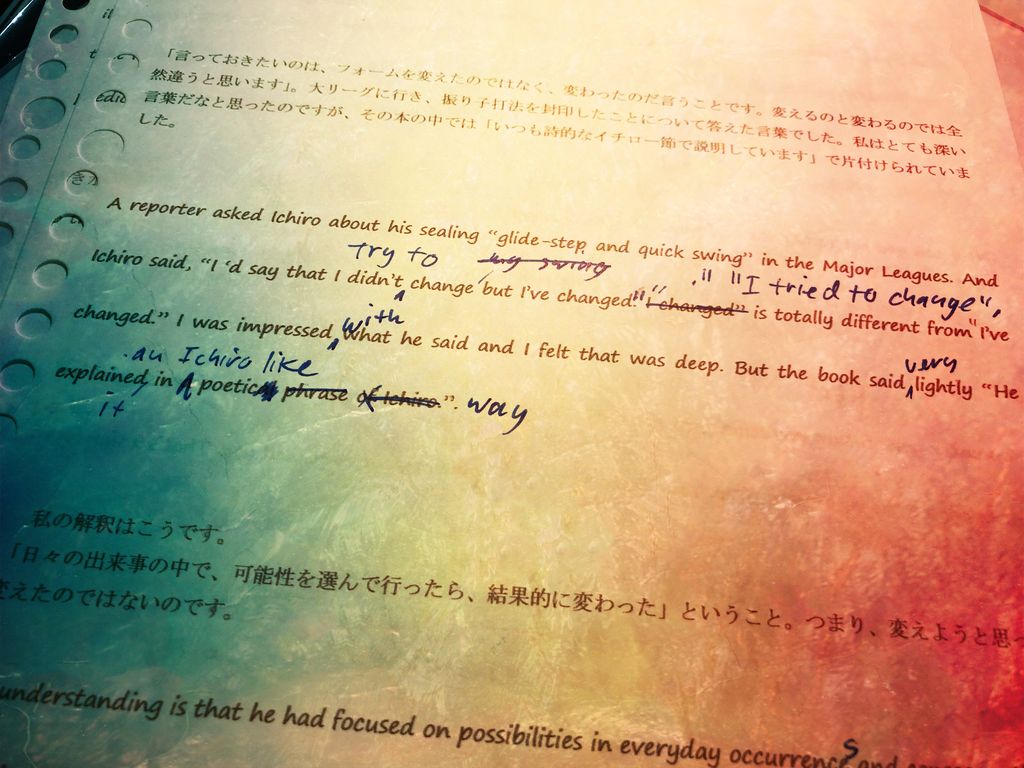 「言っておきたいのは、フォームを変えたのではなく、変わったのだ言うことです。変えるのと変わるのでは全
然違うと思います」。大リーグに行き、振り子打法を封印したことについて答えた言葉でした。私はとても深い
言葉だなと思ったのですが、その本の中では「いつも詩的なイチロー節で説明しています」で片付けられていま
した。
A reporter asked Ichiro about his sealing “glide-step and quick swing” in the Major Leagues. And
try to my swing ." "I tried to change",
Ichiro said, “I ‘d say that I didn’t change but I’ve changed.” “I changed” is totally different from "I’ve
with
changed.” I was impressed, what he said and I felt that was deep. But the book said lightly “He
very
an Ichiro like
explained in poetic phrase of Ichiro.”. way
it
私の解釈はこうです。
「日々の出来事の中で、可能性を選んで行ったら、結果的に変わった」ということ。つまり、変えようと思
変えたのではないのです。
understanding is that he had focused on possibilities in everyday occurrences and